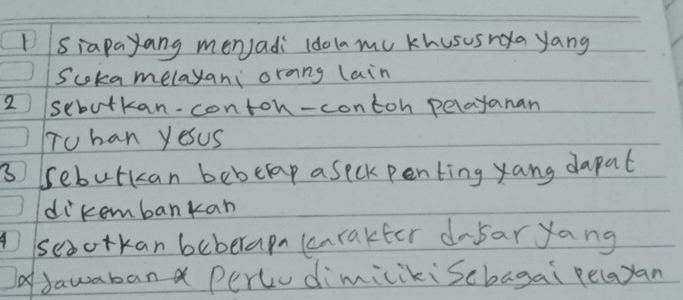 1 Siapa yang menjadi idola mu khususnya yang
suka melayani orang lain
2 sebutkan-contoh-contoh pelayanan
Tuhan Yesus
3 sebutkan beberap aspek penting yang dapat
dikembankan
4 sebutkan beberapa karakter dasar yang
Jawaban perlu dimiliki sebagai pelayan